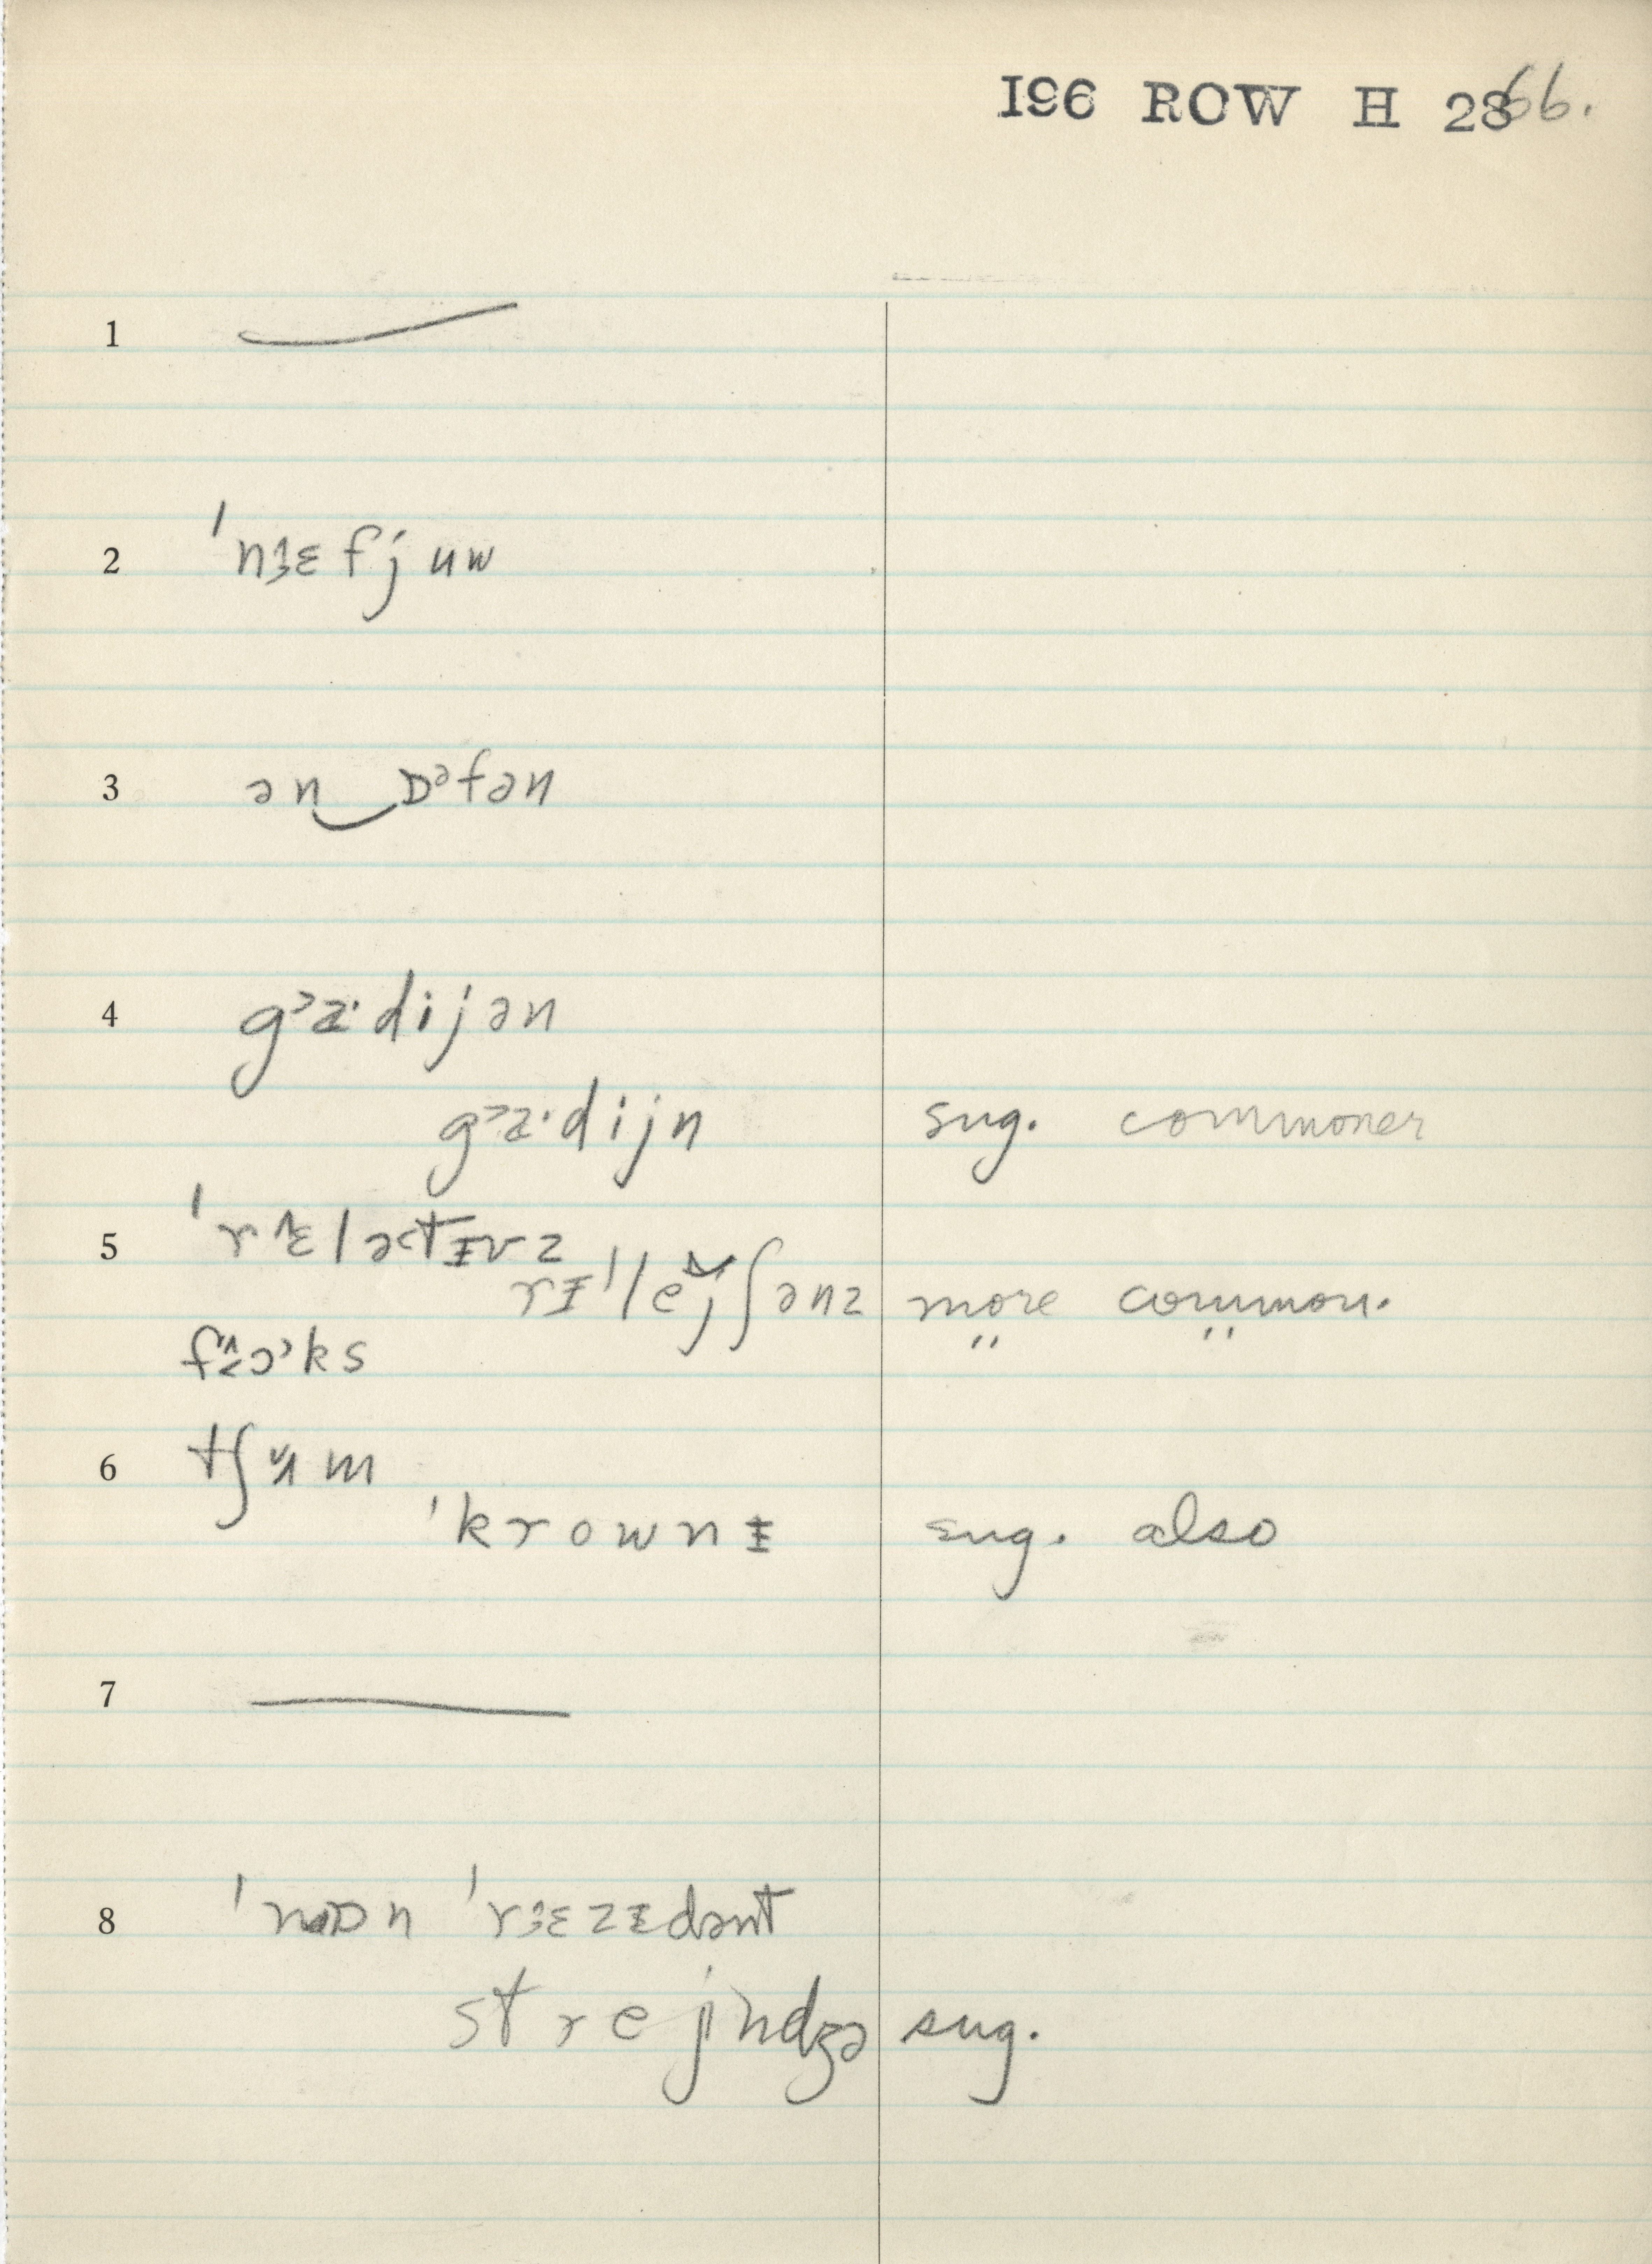 I96 ROW H 28 66.
1
2 ˈnɜɛfjuw
3 ən‿ɒᵊfən
4 gᵊa·dijən
gᵊa·dijn sug. commoner
5 ˈrɛlətɪvz
rɪˈlejʃənz more common.
fɔks " "
6 tʃʉm
ˈkrownɪ sug. also
7 —
8 ˈnɒn ˈrɜɛzɪdənt
strejndʒə sug.